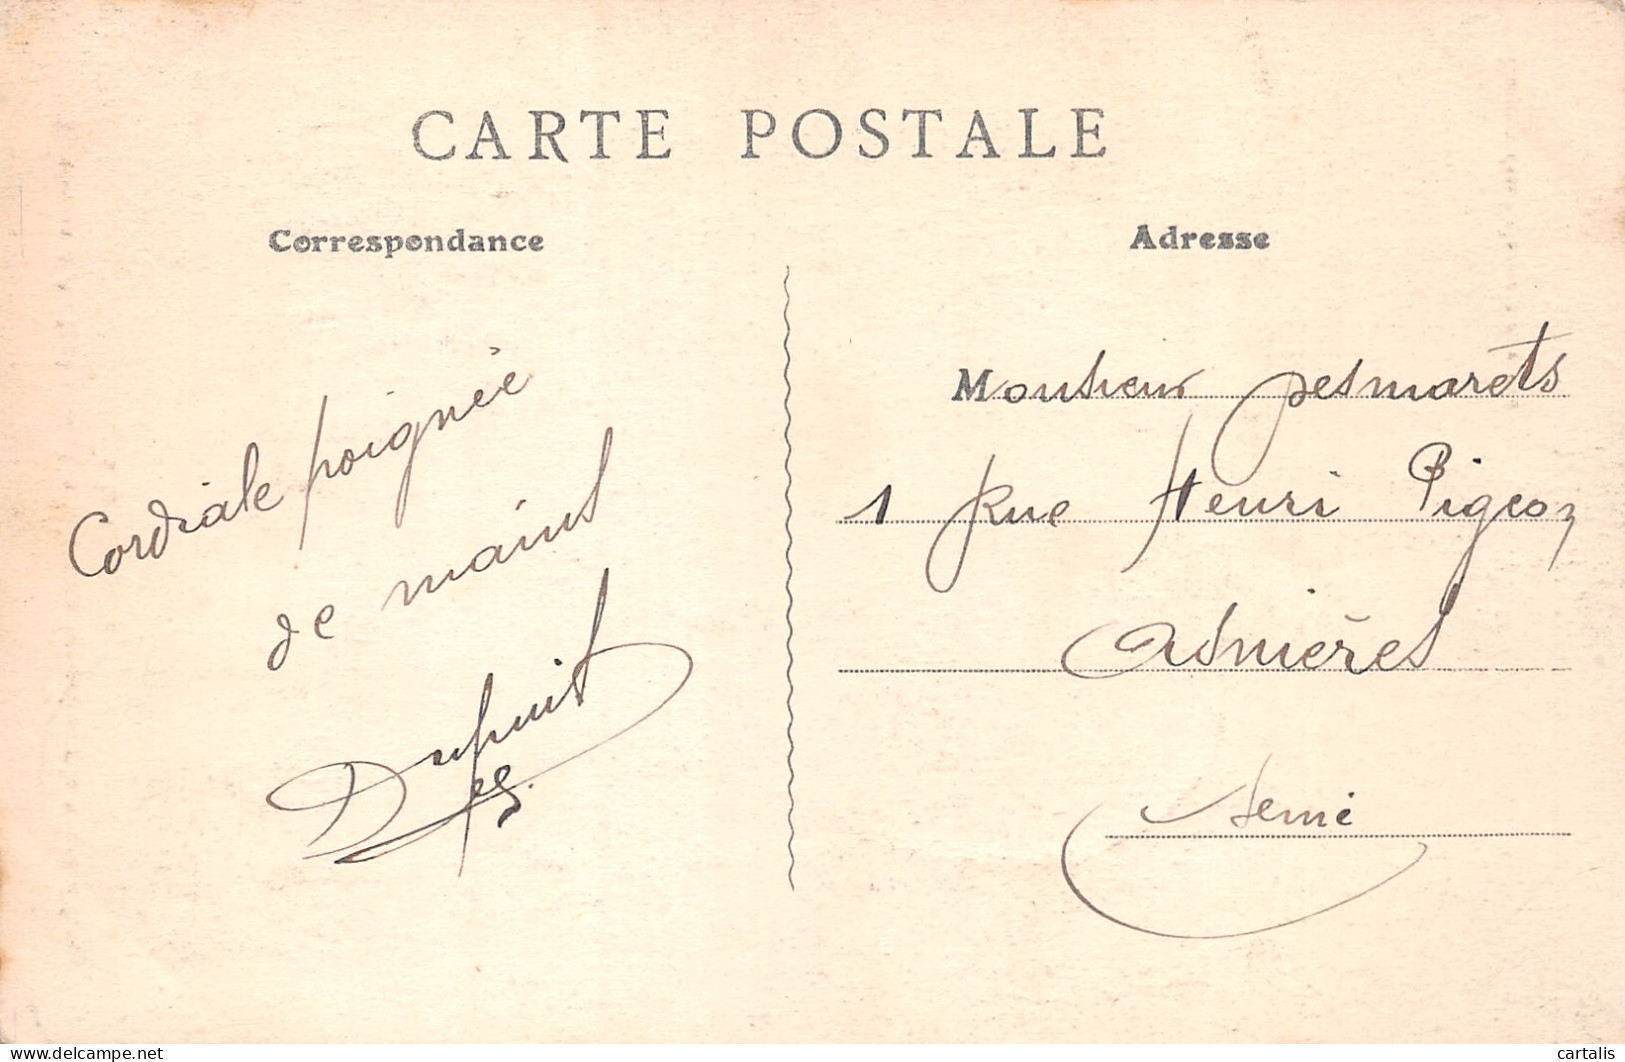 CARTE POSTALE
Correspondance
Adresse
Cordiale poignée
de mains
Dupuis
Monsieur Desmarets
1 Rue Henri Pigeon
Asnières
Seine
delcampe.net
cartalis